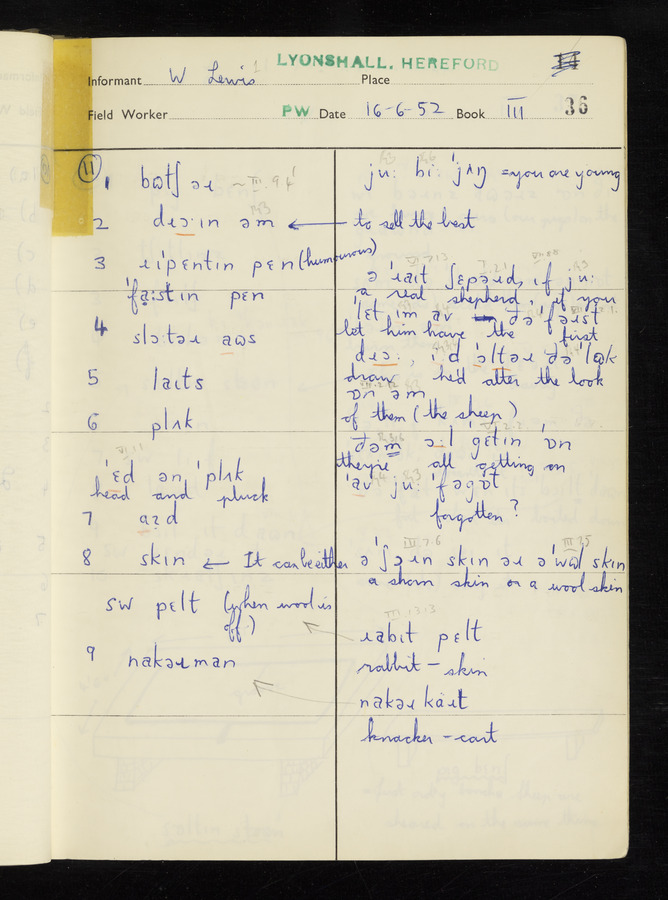 LYONSHALL. HEREFORD
Informant W Lewis Place
Field Worker PW Date 16-6-52 Book III 36
11
1 bɷtʃəɹ ~ III.9 4'
2 dɹɔ:in əm ← to sell the best
3 ɹi'pɛntin pɛn (humourous)
'fa:stin pɛn
4 slɔtəɹ aɷs
5 laits
6 plʌk
'ɛd ən 'plʌk
head and pluck
7 aɹd
8 skin ← It can be either
SW pɛlt (when wool is
off)
9 nakəɹman
ju: bi: 'jʌŋ = you are young
ə 'ɹait ʃɛpəɹd, if ju:
a real shepherd, if you
'lɛt im av ðə 'fəɹst
let him have the first
dɹɔ:, i'd 'ɔltəɹ ðə 'lɷk
draw he'd alter the look
ɒn əm
of them (the sheep)
ðəm ɔ:l 'gɛtin 'ɒn
they're all getting on
'av ju: 'fəgɒt
forgotten?
ə 'ʃɔɹn skin əɹ ə 'wɷl skin
a shorn skin or a wool skin
III.13.13
ɹabit pɛlt
rabbit - skin
nakəɹ kaɹt
knacker - cart